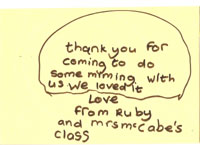 thank you for
coming to do
some miming with
us we loved it
Love
from Ruby
and mrs mccabe's
class